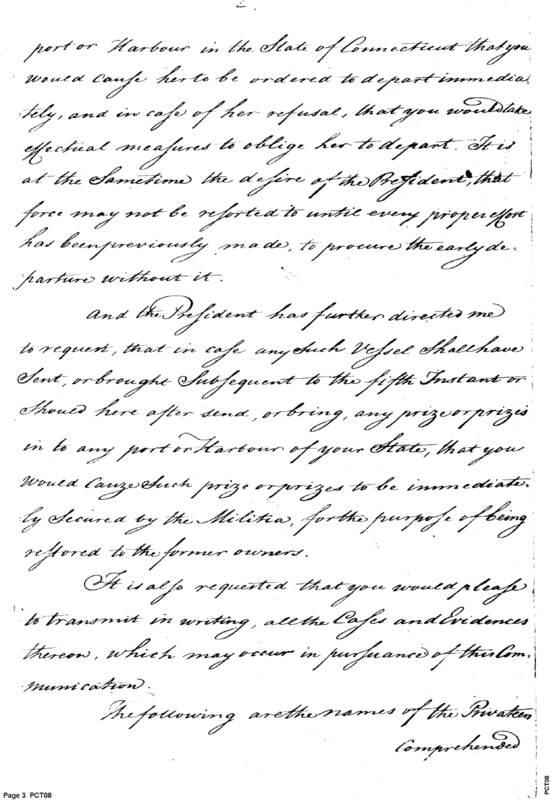 2
port or Harbour in the State of Connecticut that you
would cause her to be ordered to depart immedia
tely, and in case of her refusal, that you would take
effectual measures to oblige her to depart. It is
at the Sametime the desire of the President, that
force may not be resorted to until every proper effort
has been previously made, to procure the early de-
parture without it.
And the President has further directed me
to request, that in case any Such Vessel Shall have
Sent, or brought Subsequent to the fifth Instant or
Should here after send, or bring, any prize or prizes
in to any port or Harbour of your State, that you
would Cauze Such prize or prizes to be immediate-
ly Secured by the Militia, for the purpose of being
restored to the former owners.
It is also requested that you would please
to transmit in writing, all the Cases and Evidences
thereon, which may occur in pursuance of this Com-
munication.
The following are the names of the Privateers
Comprehended
Page 3 PCT08
PCT08